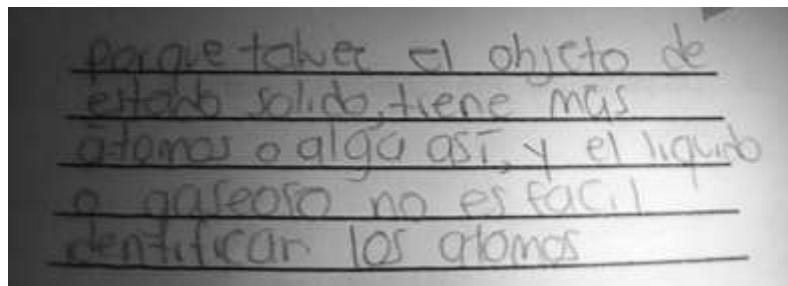 porque talvez el objeto de
estado solido, tiene mas
atomos o algo así, y el liquido
o gaseoso no es facil
identificar los atomos